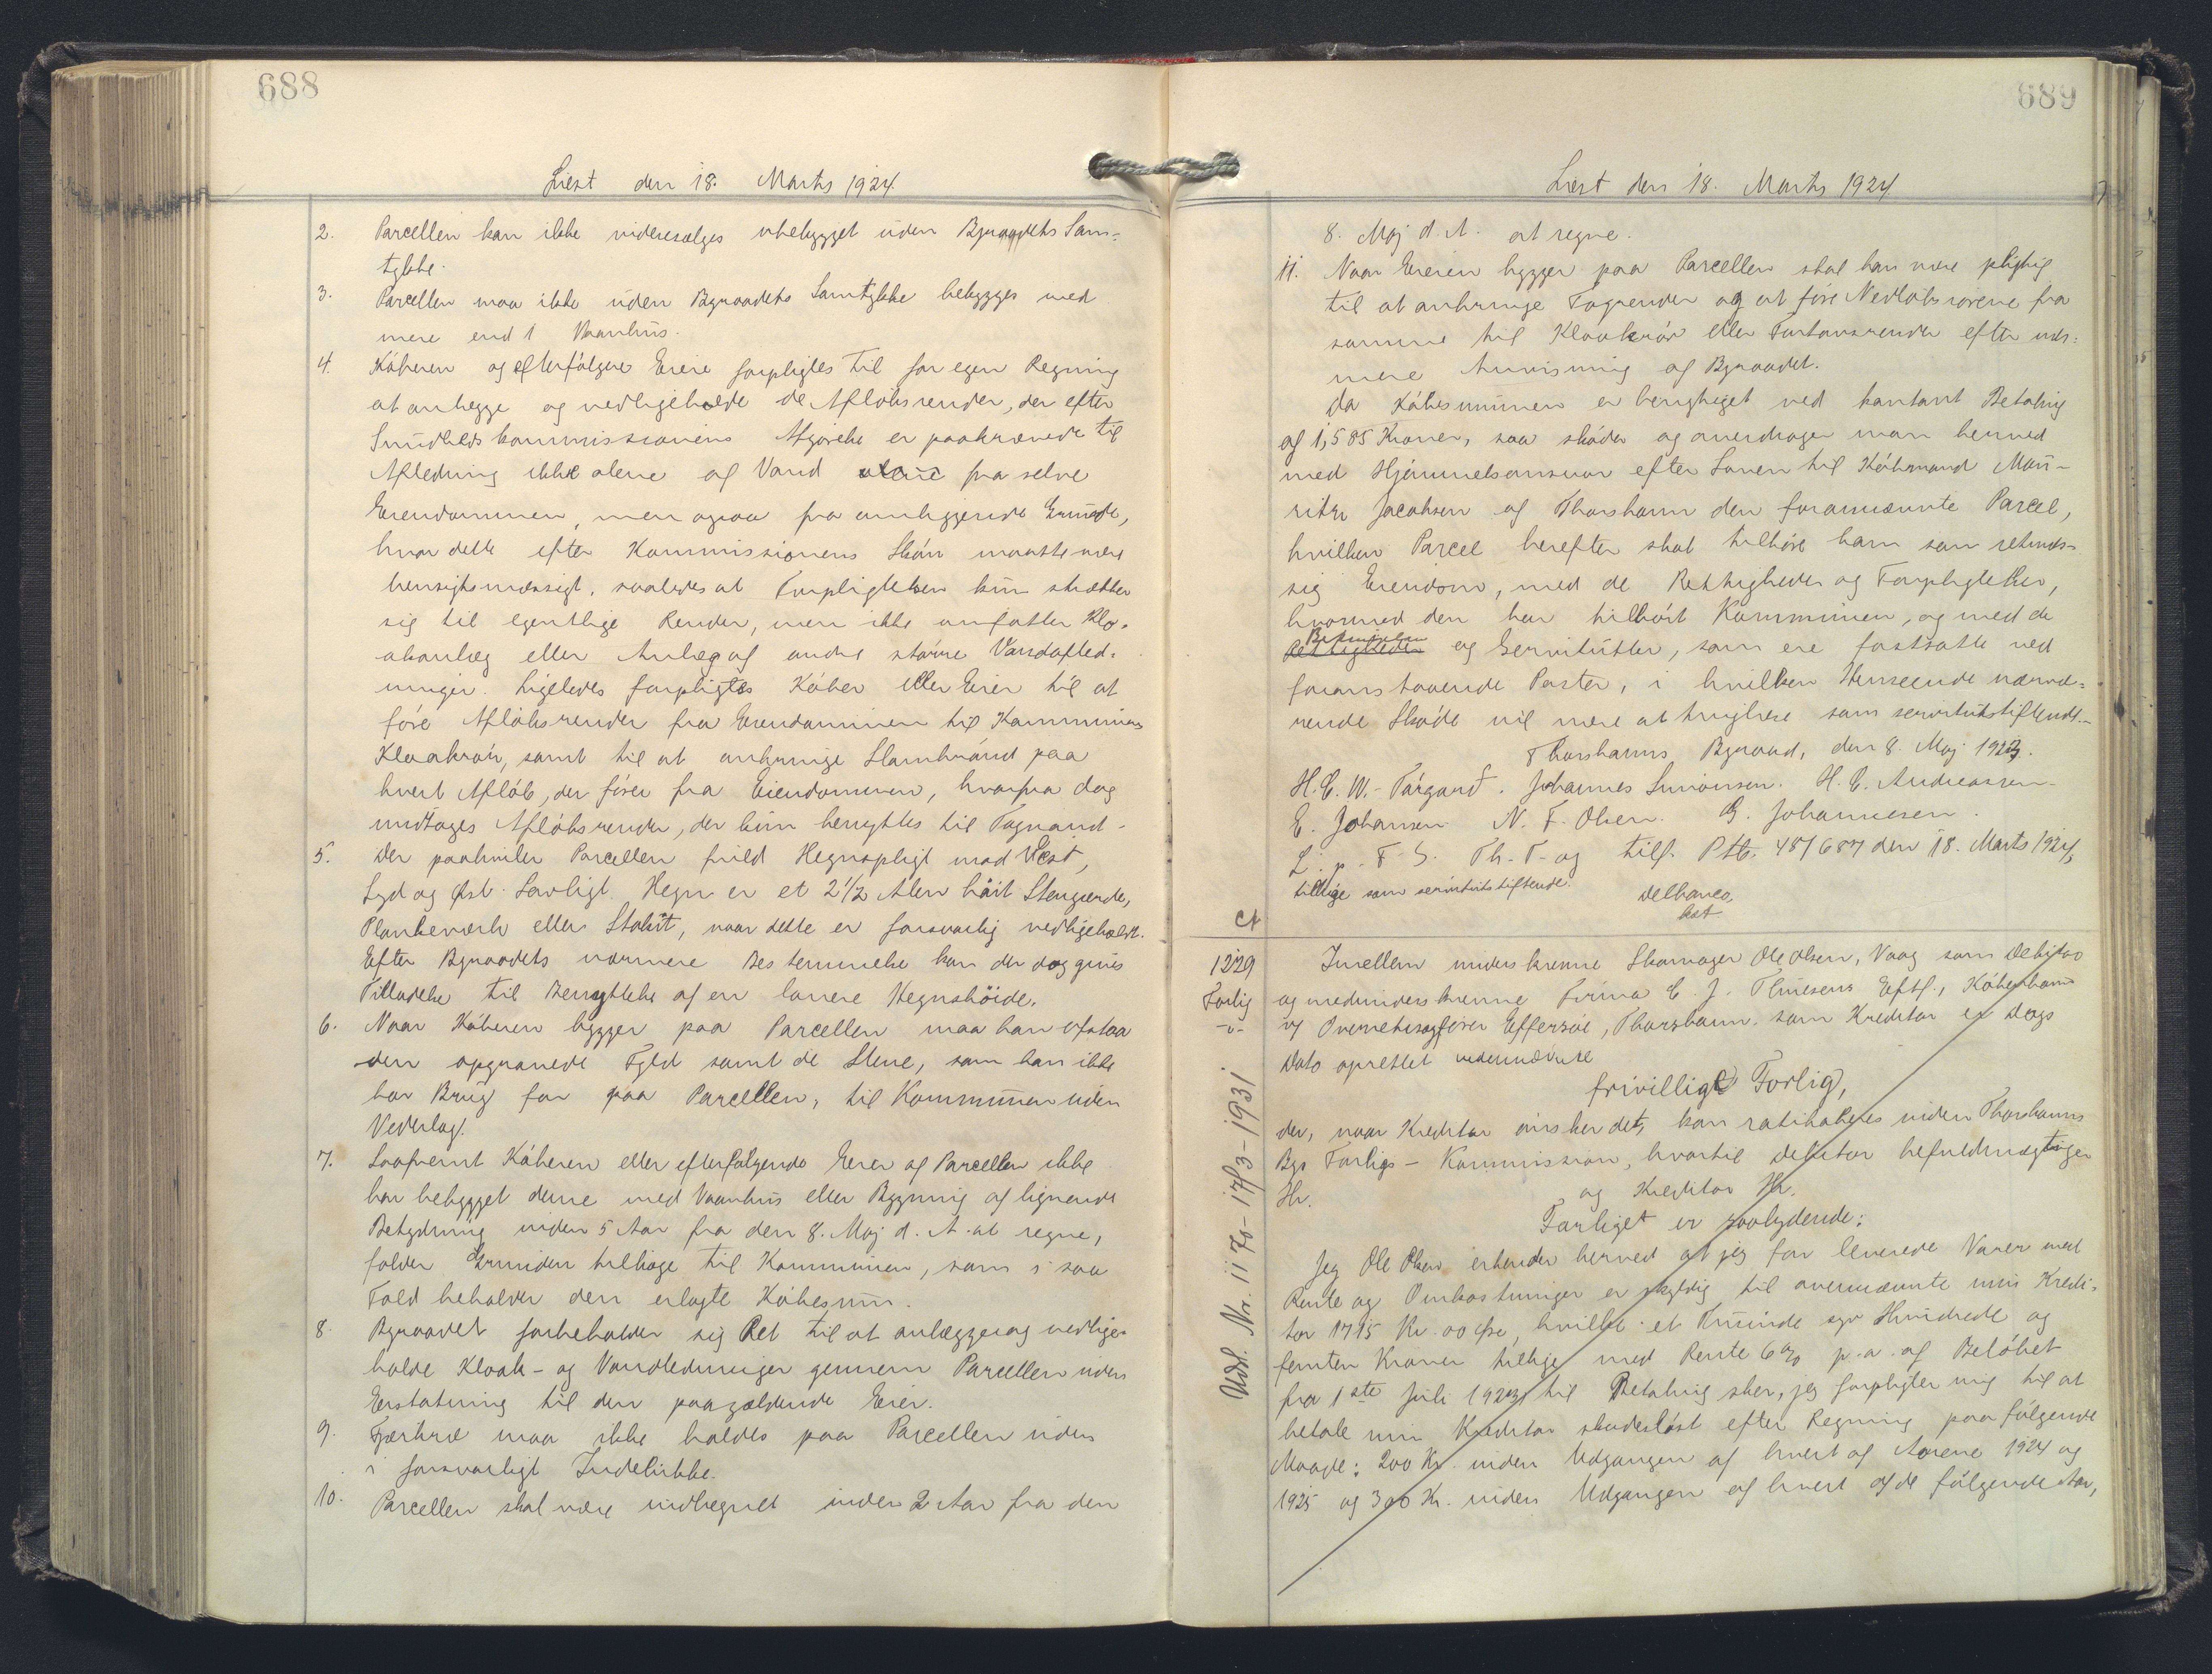 688
Læst den 18. Marts 1924.
2. Parcellen kan ikke videresælges ubebygget uden Byraadets Sam-
tykke.
3. Parcellen maa ikke uden Byraadets Samtykke bebygges med
mere end 1 Vaanhus.
4. Köberen og efterfölgere Eiere forpligtes til for egen Regning
at anlægge og vedligeholde de Aflöbsrender, der efter
Sundhedskommissionens Afgörelse er paakrævede til
Afledning ikke alene af Vand alene fra selve
Eiendommen, men ogsaa fra omliggende Grunde,
hvor dette efter Kommissionens Skön maatte være
hensigtsmæssigt, saaledes at Forpligtelsen kun strækker
sig til egentlige Render, men ikke omfatter Klo-
akanlæg eller Anlæg af andre större Vandafled-
ninger. Ligeledes forpligtes Köber eller Eier til at
före Aflöbsrender fra Eiendommen til Kommunens
Kloakrör, samt til at anbringe Slambrönd paa
hvert Aflöb, der förer fra Eiendommen, hvorfra dog
undtages Aflöbsrender, der kun benyttes til Tagvand.
5. Der paahviler Parcellen fuld Hegnspligt mod Vest,
Syd og Øst. Lovligt Hegn er et 2 1/2 Alen höit Stengærde,
Plankeværk eller Stakit, naar dette er forsvarlig vedligeholdt.
Efter Byraadets nærmere Bestemmelse kan der dog gives
Tilladelse til Benyttelse af en lavere Hegnshöide.
6. Naar Köberen bygger paa Parcellen maa han afstaa
den opgravede Fyld samt de Stene, som han ikke
har Brug for paa Parcellen, til Kommunen uden
Vederlag.
7. Saafremt Köberen eller efterfølgende Eiere af Parcellen ikke
har bebygget denne med Vaanhus eller Bygning af lignende
Betydning inden 5 Aar fra den 8. Maj d. A. at regne,
falder Grunden tilbage til Kommunen, som i saa
Fald beholder den erlagte Köbesum.
8. Byraadet forbeholder sig Ret til at anlægge og vedlige-
holde Kloak- og Vandledninger gennem Parcellen uden
Erstatning til den paagældende Eier.
9. Fjerkræ maa ikke holdes paa Parcellen uden
i forsvarligt Indelukke.
10. Parcellen skal være indhegnet inden 2 Aar fra den
689
Læst den 18. Marts 1924
8. Maj d. A. at regne.
11. Naar Eieren bygger paa Parcellen skal han være pligtig
til at anbringe Tagrender og at före Nedlöbsrörene fra
samme til Kloakrör eller Fortovsrender efter nær-
mere Anvisning af Byraadet.
Da Köbesummen er berigtiget ved kontant Betaling
af 1,585 Kroner, saa sköder og overdrager man herved
med Hjemmelsansvar efter Loven til Köbmand Mau-
ritz Jacobsen af Thorshavn den forannævnte Parcel,
hvilken Parcel herefter skal tilhöre ham som retmæs-
sig Eiendom, med de Rettigheder og Forpligtelser,
hvormed den har tilhört Kommunen, og med de
Betingelser
Rettigheder og Servitutter, som ere fastsatte ved
foranstaaende Poster, i hvilken Henseende nærvæ-
rende Sköde vil være at tinglæse som servitutstiftende.
Thorshavns Byraad, den 8. Maj 1923.
H. C. W. Tórgarð. Johannes Simonsen. H. C. Andreassen.
E. Johansen. N. F. Olsen. G. Johannesen.
L. p. F. S. Th. T. og tilf. Ptb. 487 687 den 18. Marts 1924,
tillige som servitutstiftende.
Delbanco,
kst
1229
Forlig
-v-
Udsl. Nr. 1170 - 17/3-1931.
Imellem underskrevne Skomager Ole Olsen, Vaag som Debitor
og medunderskrevne Firma C. J. Thuesens Eftf., Köbenhavn
v/ Overretssagförer Effersöe, Thorshavn. som Kreditor er Dags
Dato oprettet nedennævnte
frivillige Forlig,
der, naar Kreditor önsker det, kan ratihaberes inden Thorshavns
Bys Forligs-Kommission, hvortil Debitor befuldmægtiger
Hr. og Kreditor Hr.
Forliget er saalydende:
Jeg Ole Olsen erkender herved at jeg for leverede Varer med
Rente og Omkostninger er skyldig til ovennævnte min Kredi-
tor 1715 Kr. 00 Øre, hvilke et Tusinde syv Hundrede og
femten Kroner tillige med Rente 6% p.a. af Belöbet
fra 1ste Juli 1923 til Betaling sker, jeg forpligter mig til at
betale min Kreditor skadeslöst efter Regning paa fölgende
Maade: 200 Kr. inden Udgangen af hvert af Aarene 1924 og
1925 og 300 Kr. inden Udgangen af hvert af de fölgende Aar,